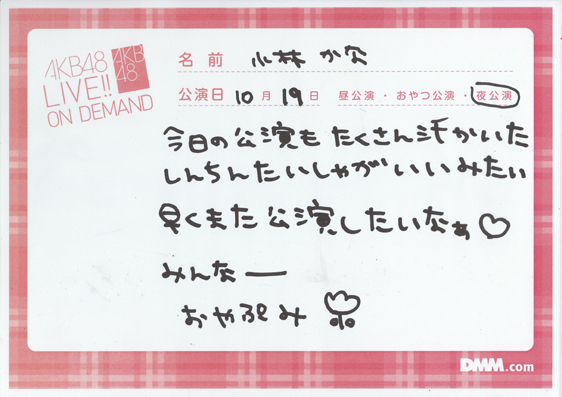 AKB48
LIVE!!
ON DEMAND
AKB
48
名前 小林 かな
公演日 10月 19日 昼公演・おやつ公演・夜公演
今日の公演も たくさん汗かいた
しんちんたいしゃが いいみたい
早くまた公演したいなぁ♡
みんなー
おやぷみ
DMM.com